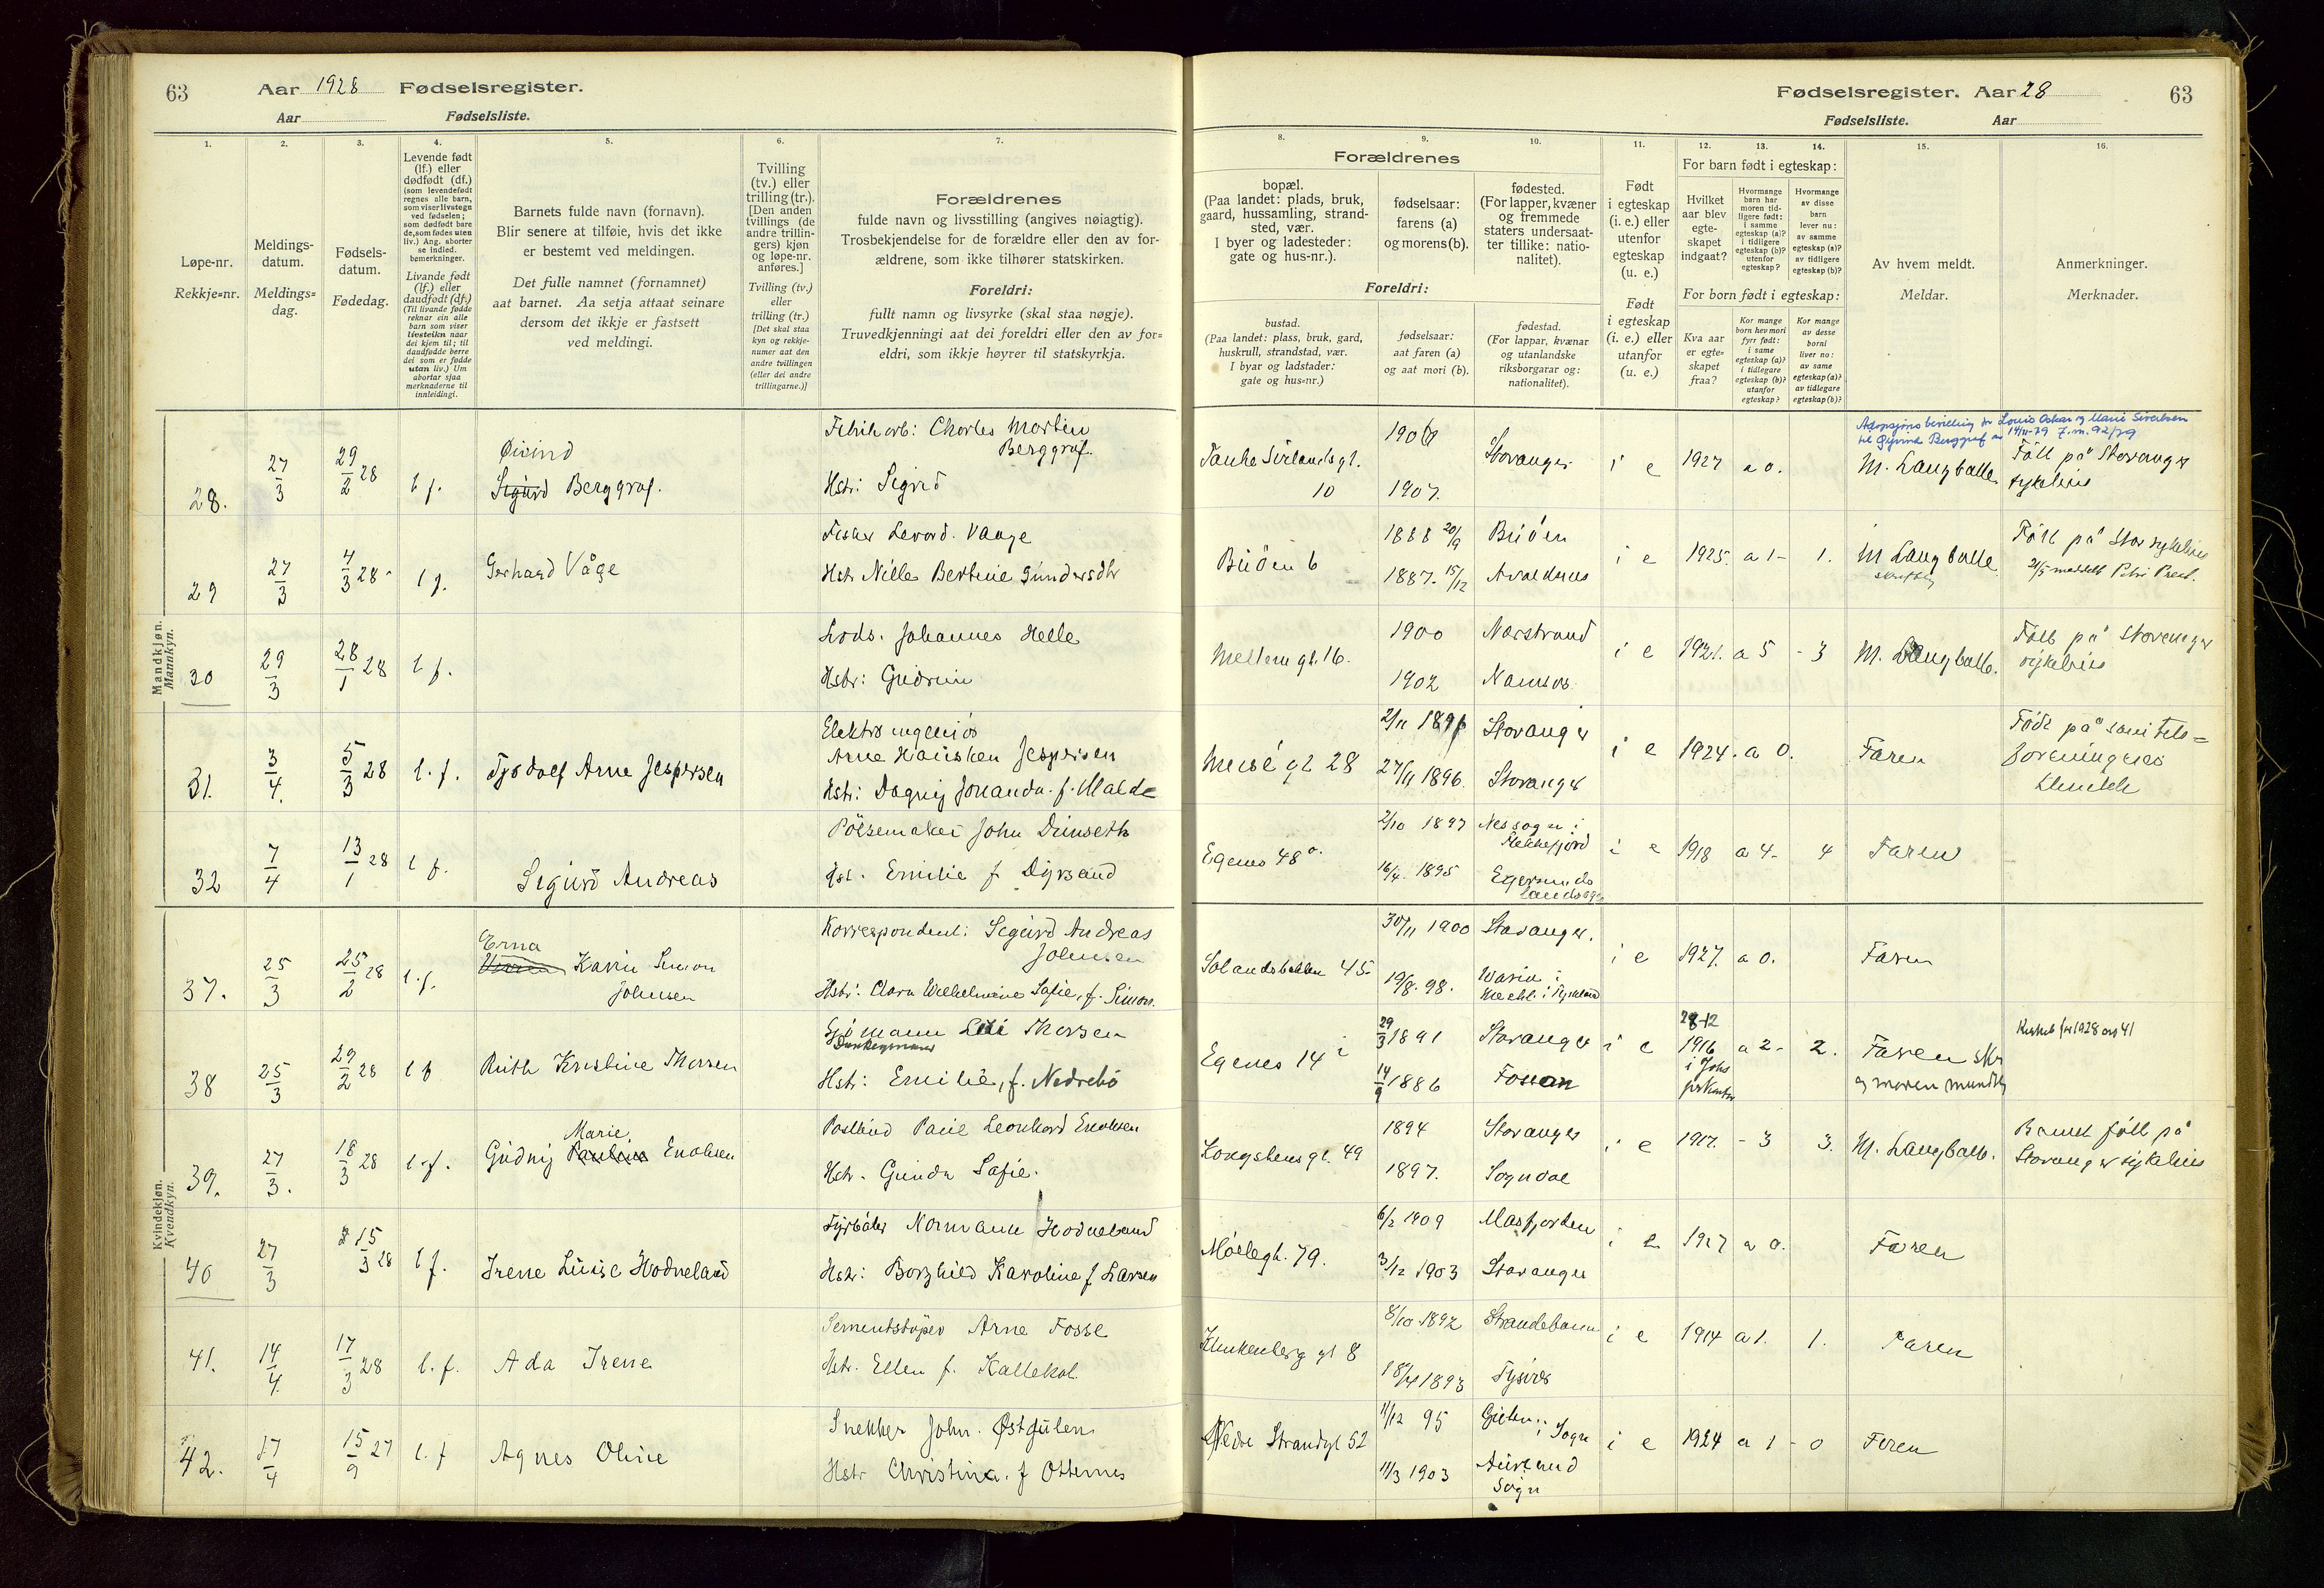 63 Aar 1928 Fødselsregister.
Aar Fødselsliste.
Fødselsregister. Aar 28 63
Fødselsliste. Aar
1.
Løpe-nr.
Rekkje=nr.
2.
Meldings-
datum.
Meldings=
dag.
3.
Fødsels-
datum.
Fødedag.
4.
Levende født
(lf.) eller
dødfødt (df.)
(som levendefødt
regnes alle barn,
som viser livstegn
ved fødselen;
som dødfødt bare
de, som fødes uten
liv.) Ang. aborter
se indled.
bemerkninger.
Livande født
(lf.) eller
daudfødt (df.)
(Til livande fødde
reknar ein alle
barn som viser
livsteikn naar
dei kjem til; til
daudfødde berre
dei som er fødde
utan liv.) Um
abortar sjaa
merknaderne til
innleidingi.
5.
Barnets fulde navn (fornavn).
Blir senere at tilføie, hvis det ikke
er bestemt ved meldingen.
Det fulle namnet (fornamnet)
aat barnet. Aa setja attaat seinare
dersom det ikkje er fastsett
ved meldingi.
6.
Tvilling
(tv.) eller
trilling (tr.).
[Den anden
tvillings (de
andre trillin-
gers) kjøn
og løpe-nr.
anføres.]
Tvilling (tv.)
eller
trilling (tr.)
[Det skal staa
kyn og rekkje-
numer aat den
andre tvillingen
(eller dei andre
trillingarne.)]
7.
Forældrenes
fulde navn og livsstilling (angives nøiagtig).
Trosbekjendelse for de forældre eller den av for-
ældrene, som ikke tilhører statskirken.
Foreldri:
fullt namn og livsyrke (skal staa nøgje).
Truvedkjenningi aat dei foreldri eller den av for=
eldri, som ikkje høyrer til statskyrkja.
8.
Forældrenes
bopæl.
(Paa landet: plads, bruk,
gaard, hussamling, strand-
sted, vær.
I byer og ladesteder:
gate og hus-nr.).
Foreldri:
bustad.
(Paa landet: plass, bruk, gard,
huskrull, strandstad, vær.
I byar og ladstader:
gate og hus=nr.)
9.
fødselsaar:
farens (a)
og morens (b).
fødselsaar:
aat faren (a)
og aat mori (b).
10.
fødested.
(For lapper, kvæner
og fremmede
staters undersaat-
ter tillike: natio-
nalitet).
fødestad.
(For lappar, kvænar
og utanlandske
riksborgarar og:
nationalitet).
11.
Født
i egteskap
(i. e.) eller
utenfor
egteskap
(u. e.)
Født
i egteskap
(i. e.) eller
utanfor
(u. e.)
12.
For barn født i egteskap:
Hvilket
aar blev
egte-
skapet
indgaat?
For born født i egteskap:
Kva aar
er egte=
skapet
fraa?
13.
Hvormange
barn har
moren tid-
ligere født:
i samme
egteskap (a)?
i tidligere
egteskap (b)?
utenfor
egteskap?
Kor mange
born hev mori
fyrr født:
i same
egteskap (a)?
i tidlegare
egteskap (b)?
utanfor
egteskap?
14.
Hvormange
av disse
barn
lever nu:
av samme
egteskap (a)?
av tidligere
egteskap (b)?
Kor mange
av desse
borni
liver no:
av same
egteskap (a)?
av tidlegare
egteskap (b)?
15.
Av hvem meldt.
Meldar.
16.
Anmerkninger.
Merknader.
Mandkjøn.
Mannkyn.
28. 27/3 29/2 28 l f. Øivind
Sigurd Berggraf.
Charles Morten
Berggraf.
Hstr: Sigrid
10 1907.
Stavanger i e 1927 a 0. M. Langballe
Født på Stavanger
sykehus
29 27/3 4/3 28 l f. Gerhard Våge
Fisker Vaage
Hstr Nille Bertine Gundersdtr
6 1888 20/9
1887. 15/12
i e 1925. a 1 - 1. M Langballe
30 29/3 28/1 28 l f. Lods. Johannes Helle
Hstr: Gudrun
gt. 16. 1900 Nærstrand
1902 Namsos
i e 1921. a 5 - 3 M. Langballe.
Født på Stavanger
sykehus
31. 3/4. 5/3 28 l. f. Tjodolf Arne Jespersen
Elektroingeniør
Arne Hausken Jespersen
Hstr: Dagny Johanda. f. Malde
gt 28 2/11 Stavanger
1896. Stavanger
i e 1924. a 0. Faren
Født på sanitets=
foreningens
klinikk
32 7/4 13/1 28 l f. Sigurd Andreas
Pölsemaker John
Emilie f Dyrsand
Egenes 48 a. 2/10 1897
Flekkefjord
16/4. 1895 Egersunds
landsogn
i e 1918 a 4 - 4 Faren
Kvindekjøn.
Kvendkyn.
37. 25/3 25/2 28 l. f. Erna
Karin Simon
Johnsen
Korrespondent: Sigurd Andreas
Johnsen
Hstr: Clara Wilhelmine Sofie, f. Simon.
Solandsbakken 45 30/11 1900 Stavanger.
19/8. 98. Warin i
i e 1927. a 0. Faren
38 25/3 29/2 28 l f Ruth Kristine Thorsen
Sjömann Thorsen
Hstr: Emilie, f. Nedrebö
Egenes 14 29/3 1891 Stavanger
14/9 1886 Fossan
i e 28-12
1916
a 2 - 2. Faren skr
og moren mundtlig
39. 27/3. 18/3 28 l. f. Marie
Gudny Pauline Enoksen
Postbud Paul Leonhard Enoksen
Hstr. Gunda Sofie.
Kongstensgt. 49 1894 Stavanger
1897. Sogndal
i e 1917. - 3 3. M. Langballe.
Barnet født på
Stavanger sykehus
40 27/3 15/3 28 l f. Irene Luise Hodneland
Fyrbøter Normann Hodneland
Hstr: Borghild Karoline f Larsen
79. 6/2 1909 Masfjorden
3/12 1903 Stavanger
i e 1927 a 0. Faren
41. 14/4. 17/3 28 l. f. Ada Irene
Sementstöper Arne Fosse
Hstr. Ellen f. Kallekol.
Klinkenberg gt 8 8/10 1892 Strandebarm
1893 Tysvær
i e 1914 a 1. 1. Faren
42. 17/4 15/9 27 l. f Agnes Oline
Snekker John. Østgulen
Hstr Christina. f Otternes
Nedre Strandgt 52 11/12 95 i Sogn
11/3 1903 Aurland
Sogn
i e 1924 a 1 - 0 Faren